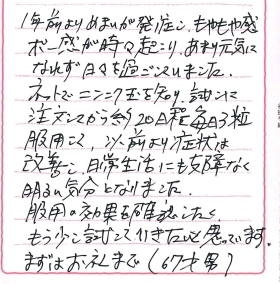 1年前よりめまいが発症し、もやもや感
ボー感が時々起こり、あまり元気に
なれず日々を過ごしていました。
ネットでニンニク玉を知り、試しに
注文してから約20日程毎日3粒
服用して、以前より症状は
改善し、日常生活にも支障なく
明るい気分となりました。
服用の効果を確認したく
もう少し試して行きたいと思っています。
まずはお礼まで(67才 男)